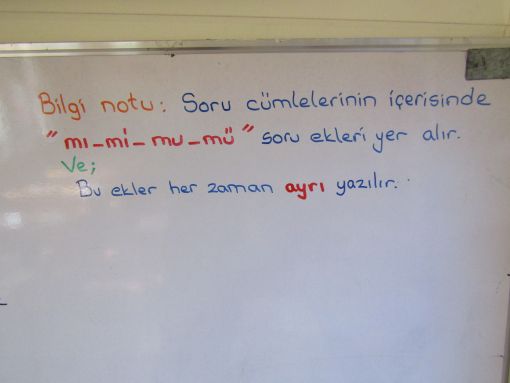 Bilgi notu: Soru cümlelerinin içerisinde
"mı-mi-mu-mü" soru ekleri yer alır.
Ve;
Bu ekler her zaman ayrı yazılır.